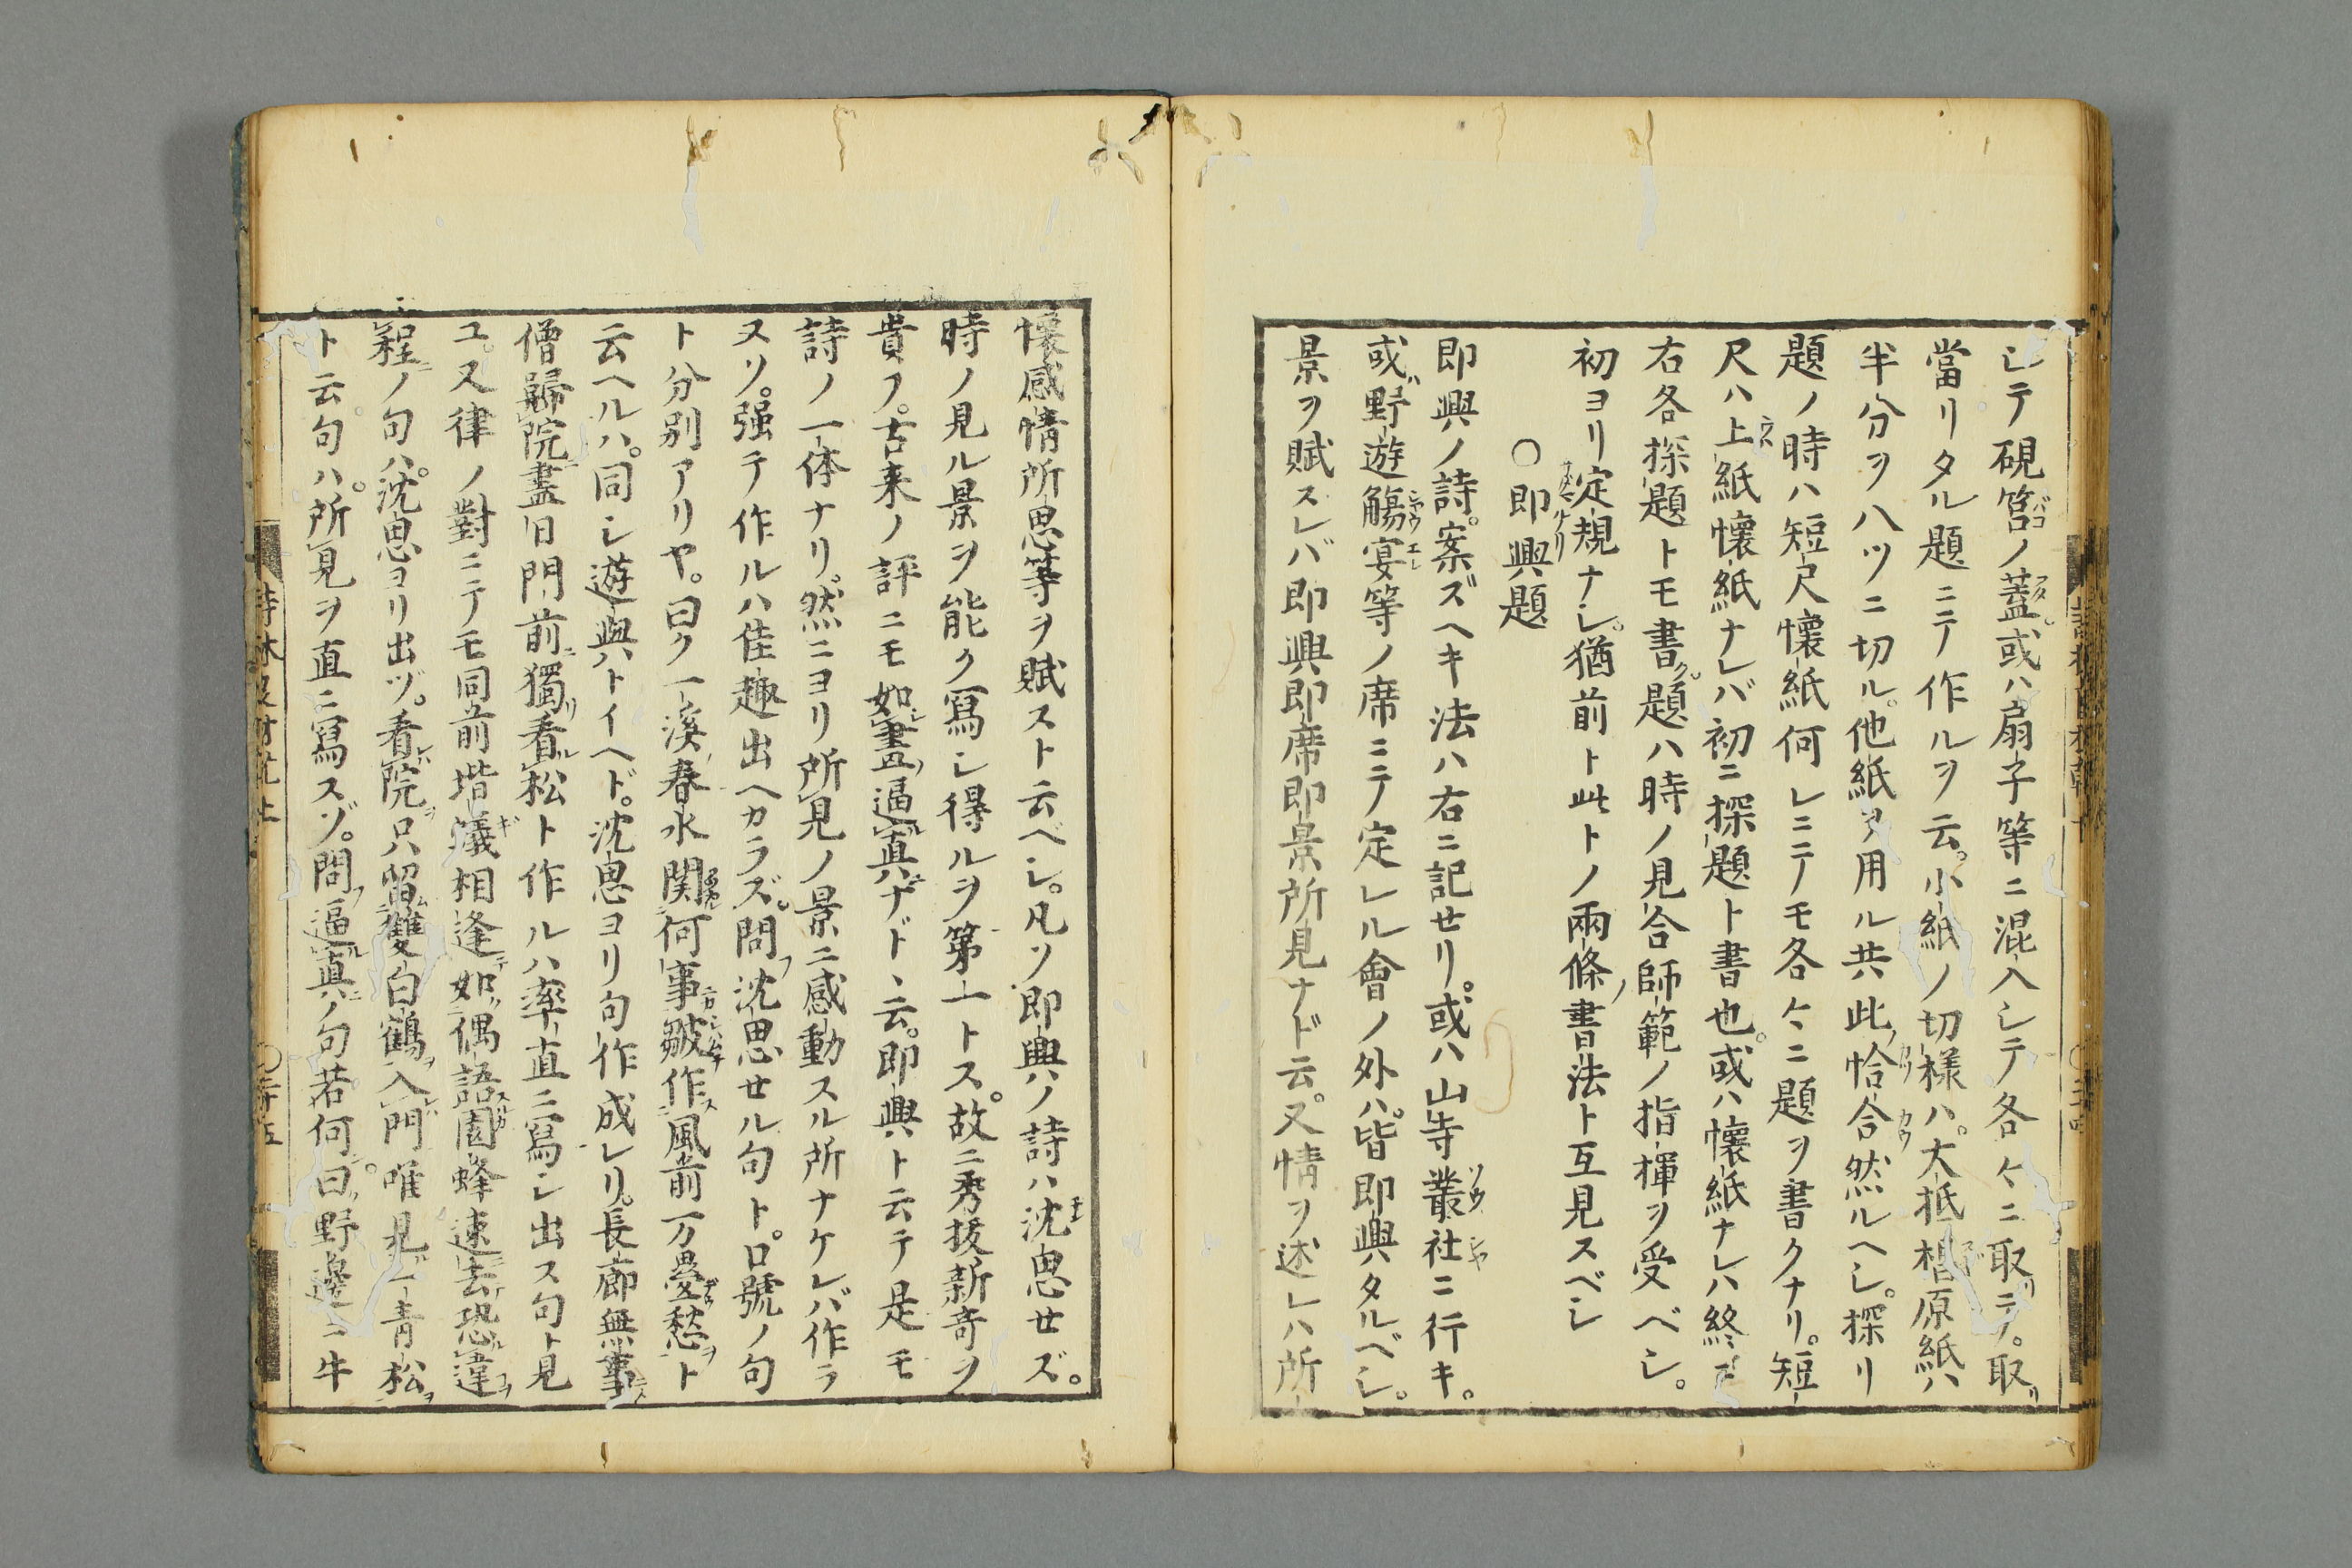 シテ硯筥ノ蓋或ハ扇子等ニ混入シテ各々ニ取リテ。取リ
當リタル題ニテ作ルヲ云。小紙ノ切様ハ。大抵椙原紙ハ
半分ヲ八ツニ切ル。他紙ヲ用ル共此ノ恰合然ルヘシ。探リ
題ノ時ハ短尺懷紙何レニテモ各々ニ題ヲ書クナリ。短
尺ハ上紙懷紙ナレバ初ニ探題ト書也。或ハ懷紙ナレハ終ニ
右各探題トモ書ク。題ハ時ノ見合師範ノ指揮ヲ受ベシ。
初ヨリ定規ナシ。猶前ト此トノ兩條ノ書法ト互見スベシ
○即興題
即興ノ詩。案ズヘキ法ハ右ニ記せリ。或ハ山寺叢社ニ行キ。
或ハ野遊觴宴等ノ席ニテ定レル會ノ外ハ。皆即興タルベシ。
景ヲ賦スレバ即興即席即景所見ナド云。又情ヲ述レハ所
懷感情所思等ヲ賦スト云ベシ。凡ソ即興ノ詩ハ沈思せズ。
時ノ見ル景ヲ能ク寫シ得ルヲ第一トス。故ニ秀拔新奇ヲ
貴フ。古来ノ評ニモ如畫逼真ナド丶云。即興ト云テ是モ
詩ノ一体ナリ。然ニヨリ所見ノ景ニ感動スル所ナケレバ作ラ
スソ。强テ作ルハ佳趣出ヘカラズ。問フ沈思せル句ト。口號ノ句
ト分別アリヤ。曰ク一溪ノ春水関何事皺作風前万疊愁ト
云ヘルハ。同シ遊興ノトイヘド。沈思ヨリ句作成レリ。長廊無事
僧歸院盡日門前獨看松ト作ルハ率直ニ寫シ出ス句ト見
ユ。又律ノ對ニテモ同前堦蟻相逢如偶語園蜂速去恐違
程ノ句ハ。沈思ヨリ出ヅ。看院只留雙白鶴入門唯見一青松
ト云句ハ。所見ヲ直ニ寫スゾ。問フ逼真ノ句若何。曰野邊ニ牛